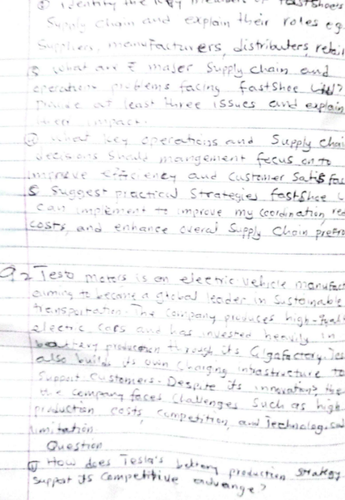 identify the key members of FastShoe's
Supply Chain and explain their roles eg
Suppliers, manufacturers, distributors, retail
what are major Supply chain and
operations problems facing FastShoe Ltd?
Provide at least three issues and explain
their impact
what key operations and Supply Chai
decisions should management focus on to
improve Efficiency and Customer Satisfac
Suggest practical Strategies FastShoe L
can implement to improve coordination, red
costs, and enhance overal Supply Chain
Q2 motors is an electric vehicle manufact
aiming to become a Global leader in Sustainable
transportation. The company produces high-
electric cars and has invested heavily in
battery production through its Gigafactory. Tes
also builds its own Charging infrastructure to
Support customers. Despite its innovation, the
the company faces Challenges such as high
production costs, competition, and Technological
limitation
Question
How does Tesla's battery production strategy
Support its Competitive advange?